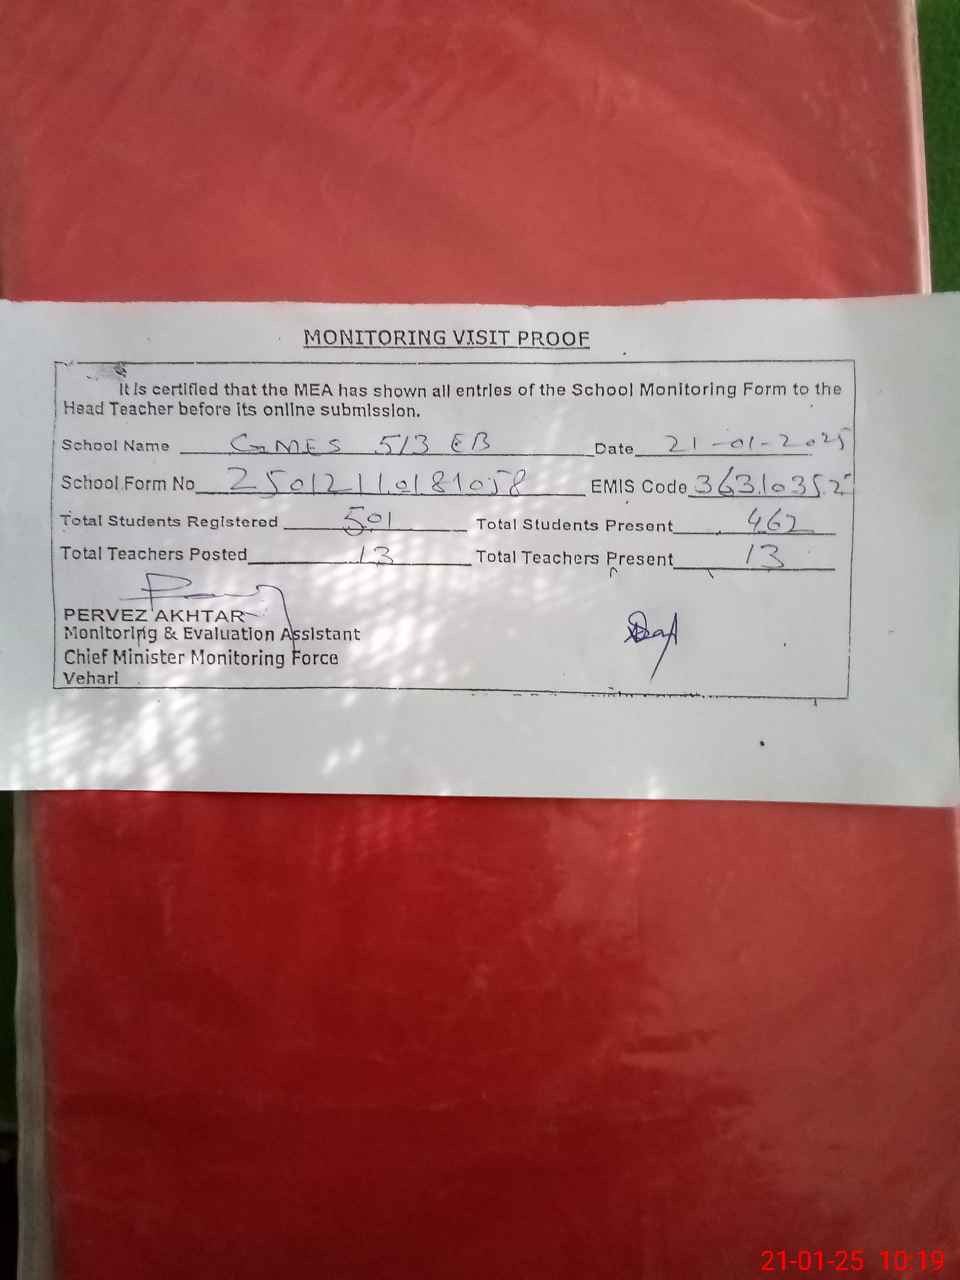 MONITORING VISIT PROOF
It is certified that the MEA has shown all entries of the School Monitoring Form to the
Head Teacher before its online submission.
School Name GMES 513 EB Date 21-01-2025
School Form No 25012110181058 EMIS Code 36310352
Total Students Registered 501 Total Students Present 462
Total Teachers Posted 13 Total Teachers Present 13
PERVEZ AKHTAR
Monitoring & Evaluation Assistant
Chief Minister Monitoring Force
Vehari
21-01-25 10:19